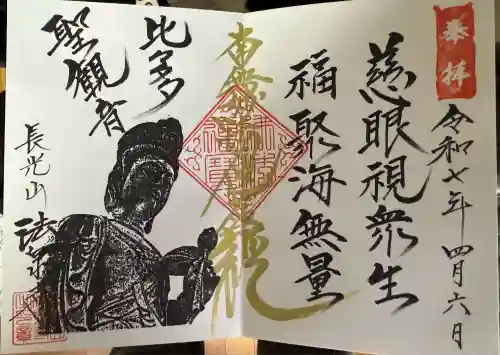 奉拝
令和七年四月六日
慈眼視衆生
福聚海無量
南無
観
比多
聖観音
長光山
法泉寺